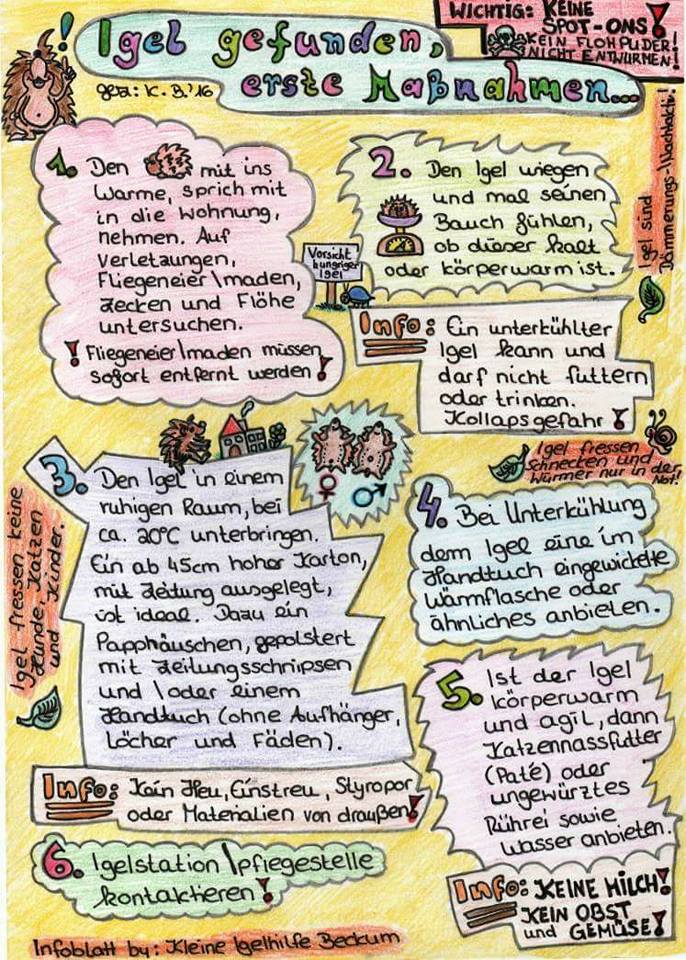 WICHTIG: KEINE
SPOT-ONS!
KEIN FLOHPUDER!
NICHT ENTWURMEN!
! Igel gefunden,
gez.: K. B. '16
erste Maßnahmen...
Igel sind
Dämmerungs-\Nachtaktiv!
1. Den mit ins
Warme, sprich mit
in die Wohnung,
nehmen. Auf
Verletzungen,
Fliegeneier\maden,
Zecken und Flöhe
untersuchen.
! Fliegeneier\maden müssen
sofort entfernt werden!
2. Den Igel wiegen
und mal seinen
Bauch fühlen,
ob dieser kalt
oder körperwarm ist.
Vorsicht
hungriger
Igel
Info: Ein unterkühlter
Igel kann und
darf nicht futtern
oder trinken.
Kollapsgefahr!
Igel fressen
Schnecken und
Würmer nur in der
Not!
3. Den Igel in einem
ruhigen Raum, bei
ca. 20°C unterbringen.
Ein ab 45cm hoher Karton,
mit Zeitung ausgelegt,
ist ideal. Dazu ein
Papphäuschen, gepolstert
mit Zeitungsschnipsen
und \oder einem
Handtuch (ohne Aufhänger,
Löcher und Fäden).
♀ ♂
Igel fressen keine
Hunde, Katzen
und Kinder.
4. Bei Unterkühlung
dem Igel eine im
Handtuch eingewickelte
Wärmflasche oder
ähnliches anbieten.
5. Ist der Igel
körperwarm
und agil, dann
Katzennassfutter
(Paté) oder
ungewürztes
Rührei sowie
Wasser anbieten.
Info: Kein Heu, Einstreu, Styropor
oder Materialien von draußen!
6. Igelstation \pflegestelle
kontaktieren!
Info: KEINE MILCH!
KEIN OBST
und GEMÜSE!
Infoblatt by: Kleine Igelhilfe Beckum